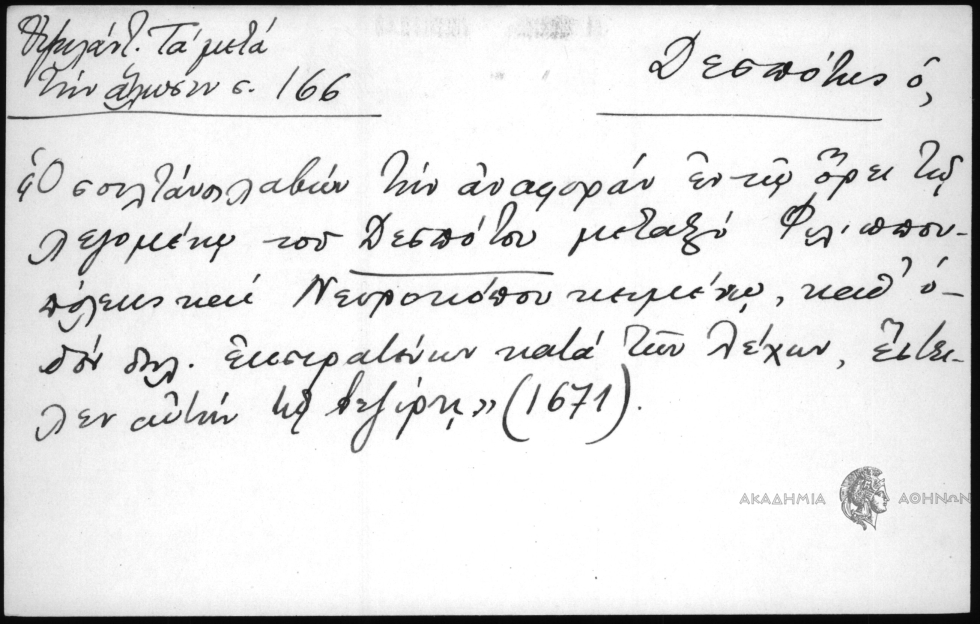 Ὑψηλάντ. Τά μετά
τήν ἅλωσιν σ. 166
Δεσπότης ὁ,
«Ὁ σουλτάνος λαβών τήν ἀναφοράν ἐν τῷ ὄρει τῷ
λεγομένῳ τοῦ Δεσπότου μεταξύ Φιλιππου-
πόλεως καί Νευροκόπου κειμένῳ, καθ' ὁ-
δόν δηλ. ἐκστρατεύων κατά τῶν Λέχων, ἔστει-
λεν αὐτήν τῷ βεζίρῃ» (1671).
ΑΚΑΔΗΜΙΑ ΑΘΗΝΩΝ